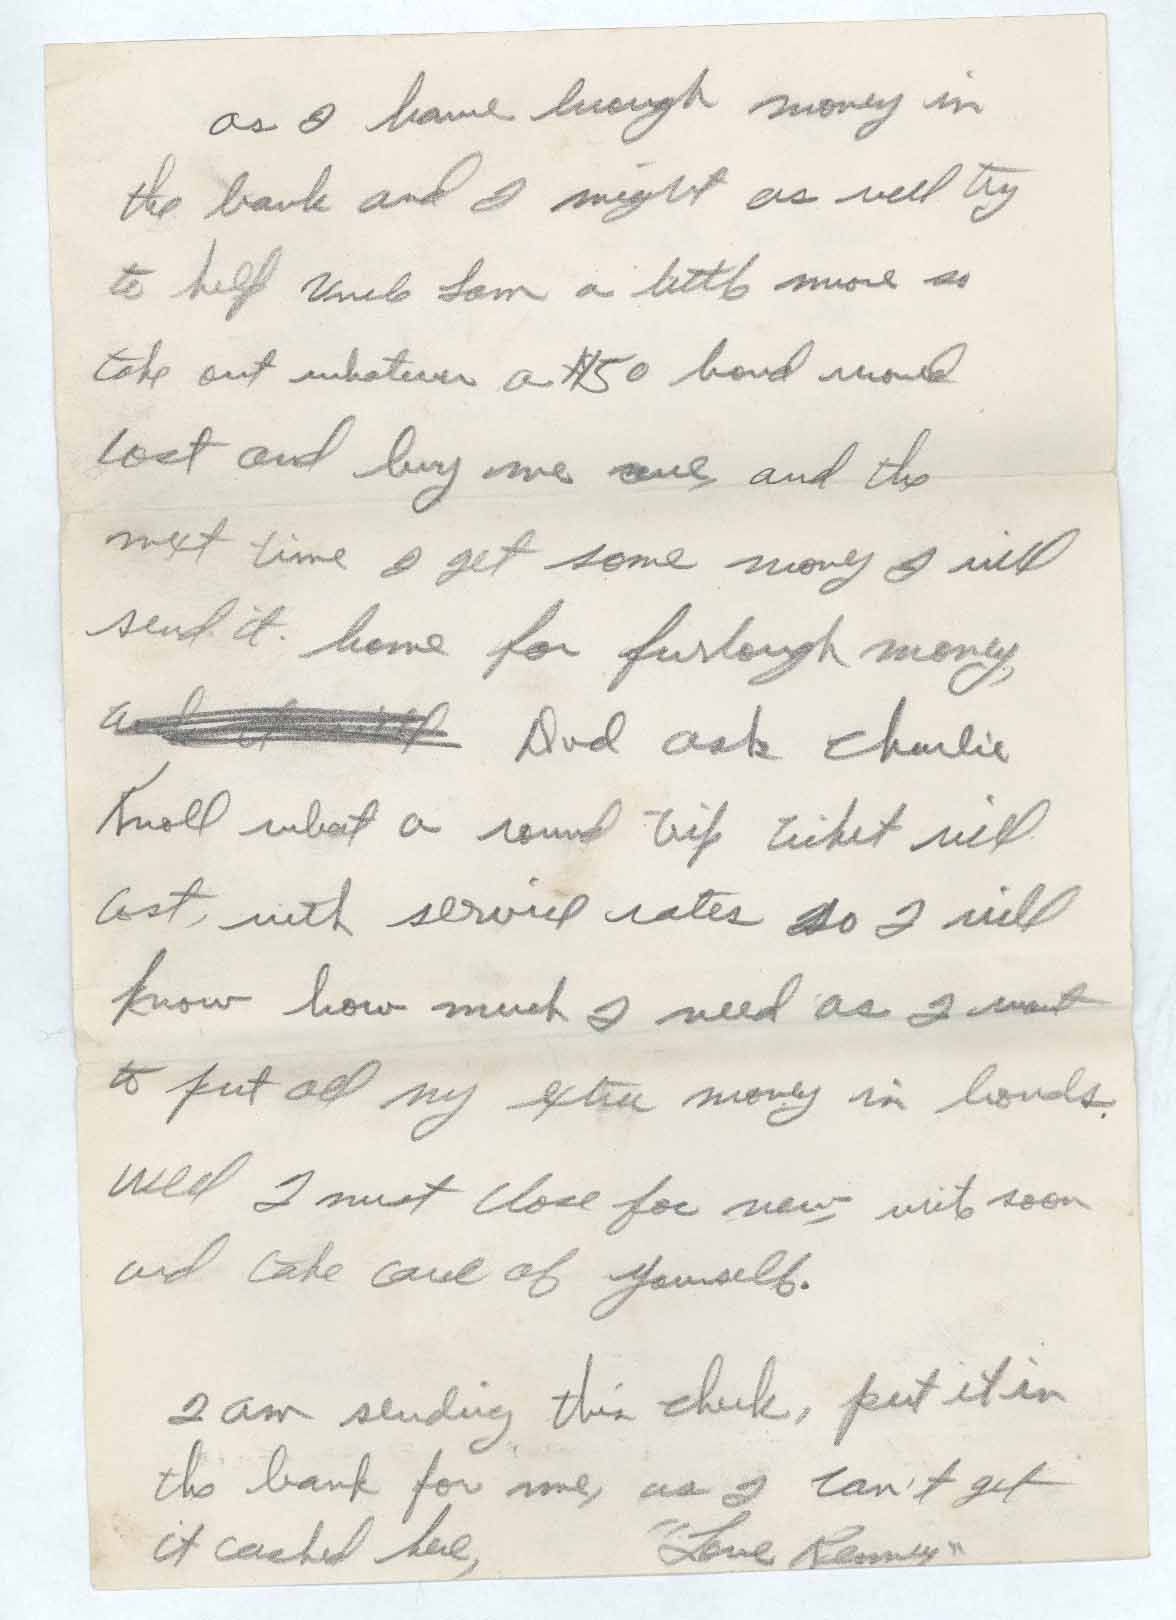 as I have enough money in
the bank and I might as well try
to help Uncle Sam a little more so
take out whatever a $50 bond would
cost and buy me one, and the
next time I get some money I will
send it home for furlough money,
and it will Dad ask Charlie
Knoll what a round trip ticket will
cost, with service rates so I will
know how much I need as I want
to put all my extra money in bonds.
Well I must close for now, write soon
and take care of yourself.
I am sending this check, put it in
the bank for me, as I can't get
it cashed here,
"Love Kenney"